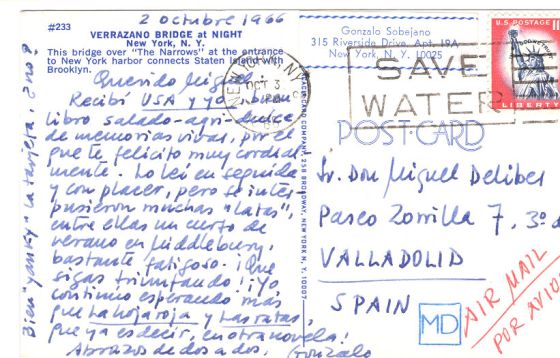 2 octubre 1966
#233
VERRAZANO BRIDGE at NIGHT
New York, N. Y.
This bridge over "The Narrows" at the entrance
to New York harbor connects Staten Island with
Brooklyn.
Querido Miguel:
Recibí USA y yo, buen
libro salado-agri-dulce
de memorias vivas, por el
que te felicito muy cordial
mente. Lo leí en seguida
y con placer, pero se inter
pusieron muchas "latas",
entre ellas un curso de
verano en Middlebury,
bastante fatigoso. ¡Que
sigas triunfando! ¡Yo
continuo esperando más
que La hoja roja y Las ratas,
que ya es decir, en otra novela!
Abrazos de dos a dos. Gonzalo
Bien "yanky" la tarjeta, ¿no?
258 BROADWAY, NEW YORK, N.Y. 10007
Gonzalo Sobejano
315 Riverside Drive, Apt. 19A
New York, N. Y. 10025
NEW YORK, N.Y.
OCT 3
SAVE
WATER
U.S. POSTAGE 11¢
LIBERTY
POST CARD
Sr. Don Miguel Delibes
Paseo Zorrilla 7, 3º
VALLADOLID
SPAIN
MD
AIR MAIL
POR AVIO